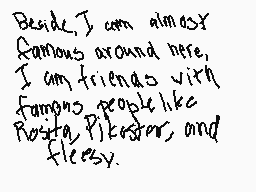 Beside, I am almost
famous around here,
I am friends with
famous people like
Rosita, Pikastar, and
fleesy.